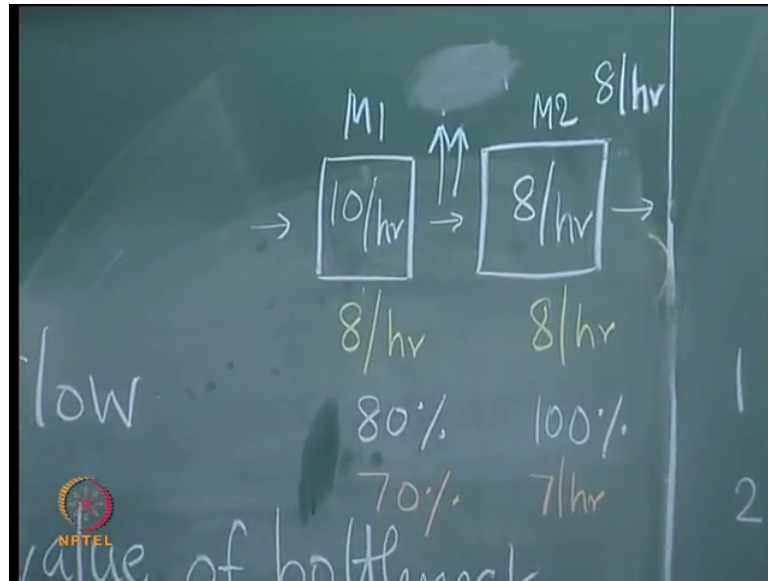 M1 M2 8/hr
→ 10/hr → 8/hr →
8/hr 8/hr
low
80% 100% 1
70% 7/hr 2
NPTEL
value of bottleneck